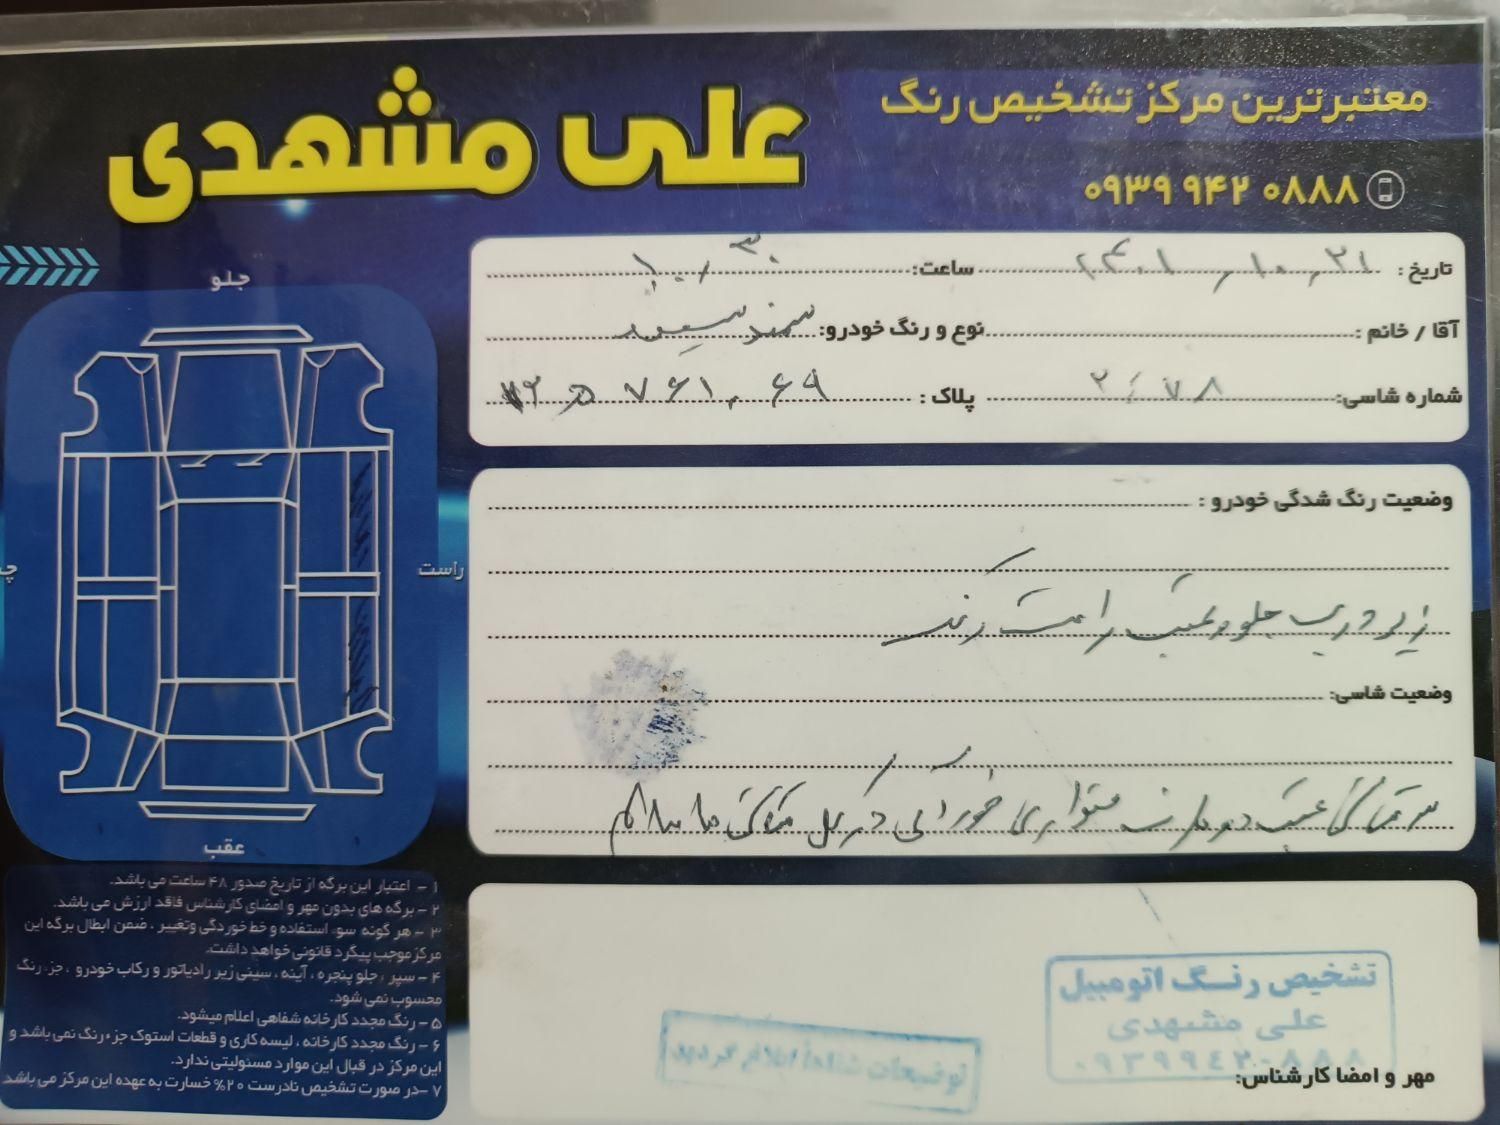 معتبرترین مرکز تشخیص رنگ
علی مشهدی
۰۹۳۹ ۹۴۲ ۰۸۸۸
تاریخ : ساعت: ۱۰,۳۰
آقا / خانم : نوع و رنگ خودرو: سمند سفید
شماره شاسی: پلاک :
جلو
راست
عقب
وضعیت رنگ شدگی خودرو :
زیر دری جلو و عقب راست رنگ
وضعیت شاسی:
۱- اعتبار این برگه از تاریخ صدور ۴۸ ساعت می باشد.
۲- برگه های بدون مهر و امضای کارشناس فاقد ارزش می باشد.
۳- هر گونه سوء استفاده و خط خوردگی وتغییر ، ضمن ابطال برگه این
مرکز موجب پیگرد قانونی خواهد داشت.
۴- سپر ، جلو پنجره ، آینه ، سینی زیر رادیاتور و رکاب خودرو ، جزء رنگ
محسوب نمی شود.
۵- رنگ مجدد کارخانه شفاهی اعلام میشود.
۶- رنگ مجدد کارخانه ، لیسه کاری و قطعات استوک جزء رنگ نمی باشد و
این مرکز در قبال این موارد مسئولیتی ندارد.
۷-در صورت تشخیص نادرست ۲۰% خسارت به عهده این مرکز می باشد
تشخیص رنگ اتومبیل
علی مشهدی
۰۹۳۹۹۴۲۰۸۸۸
توضیحات شفاها ابلاغ گردید
مهر و امضا کارشناس: